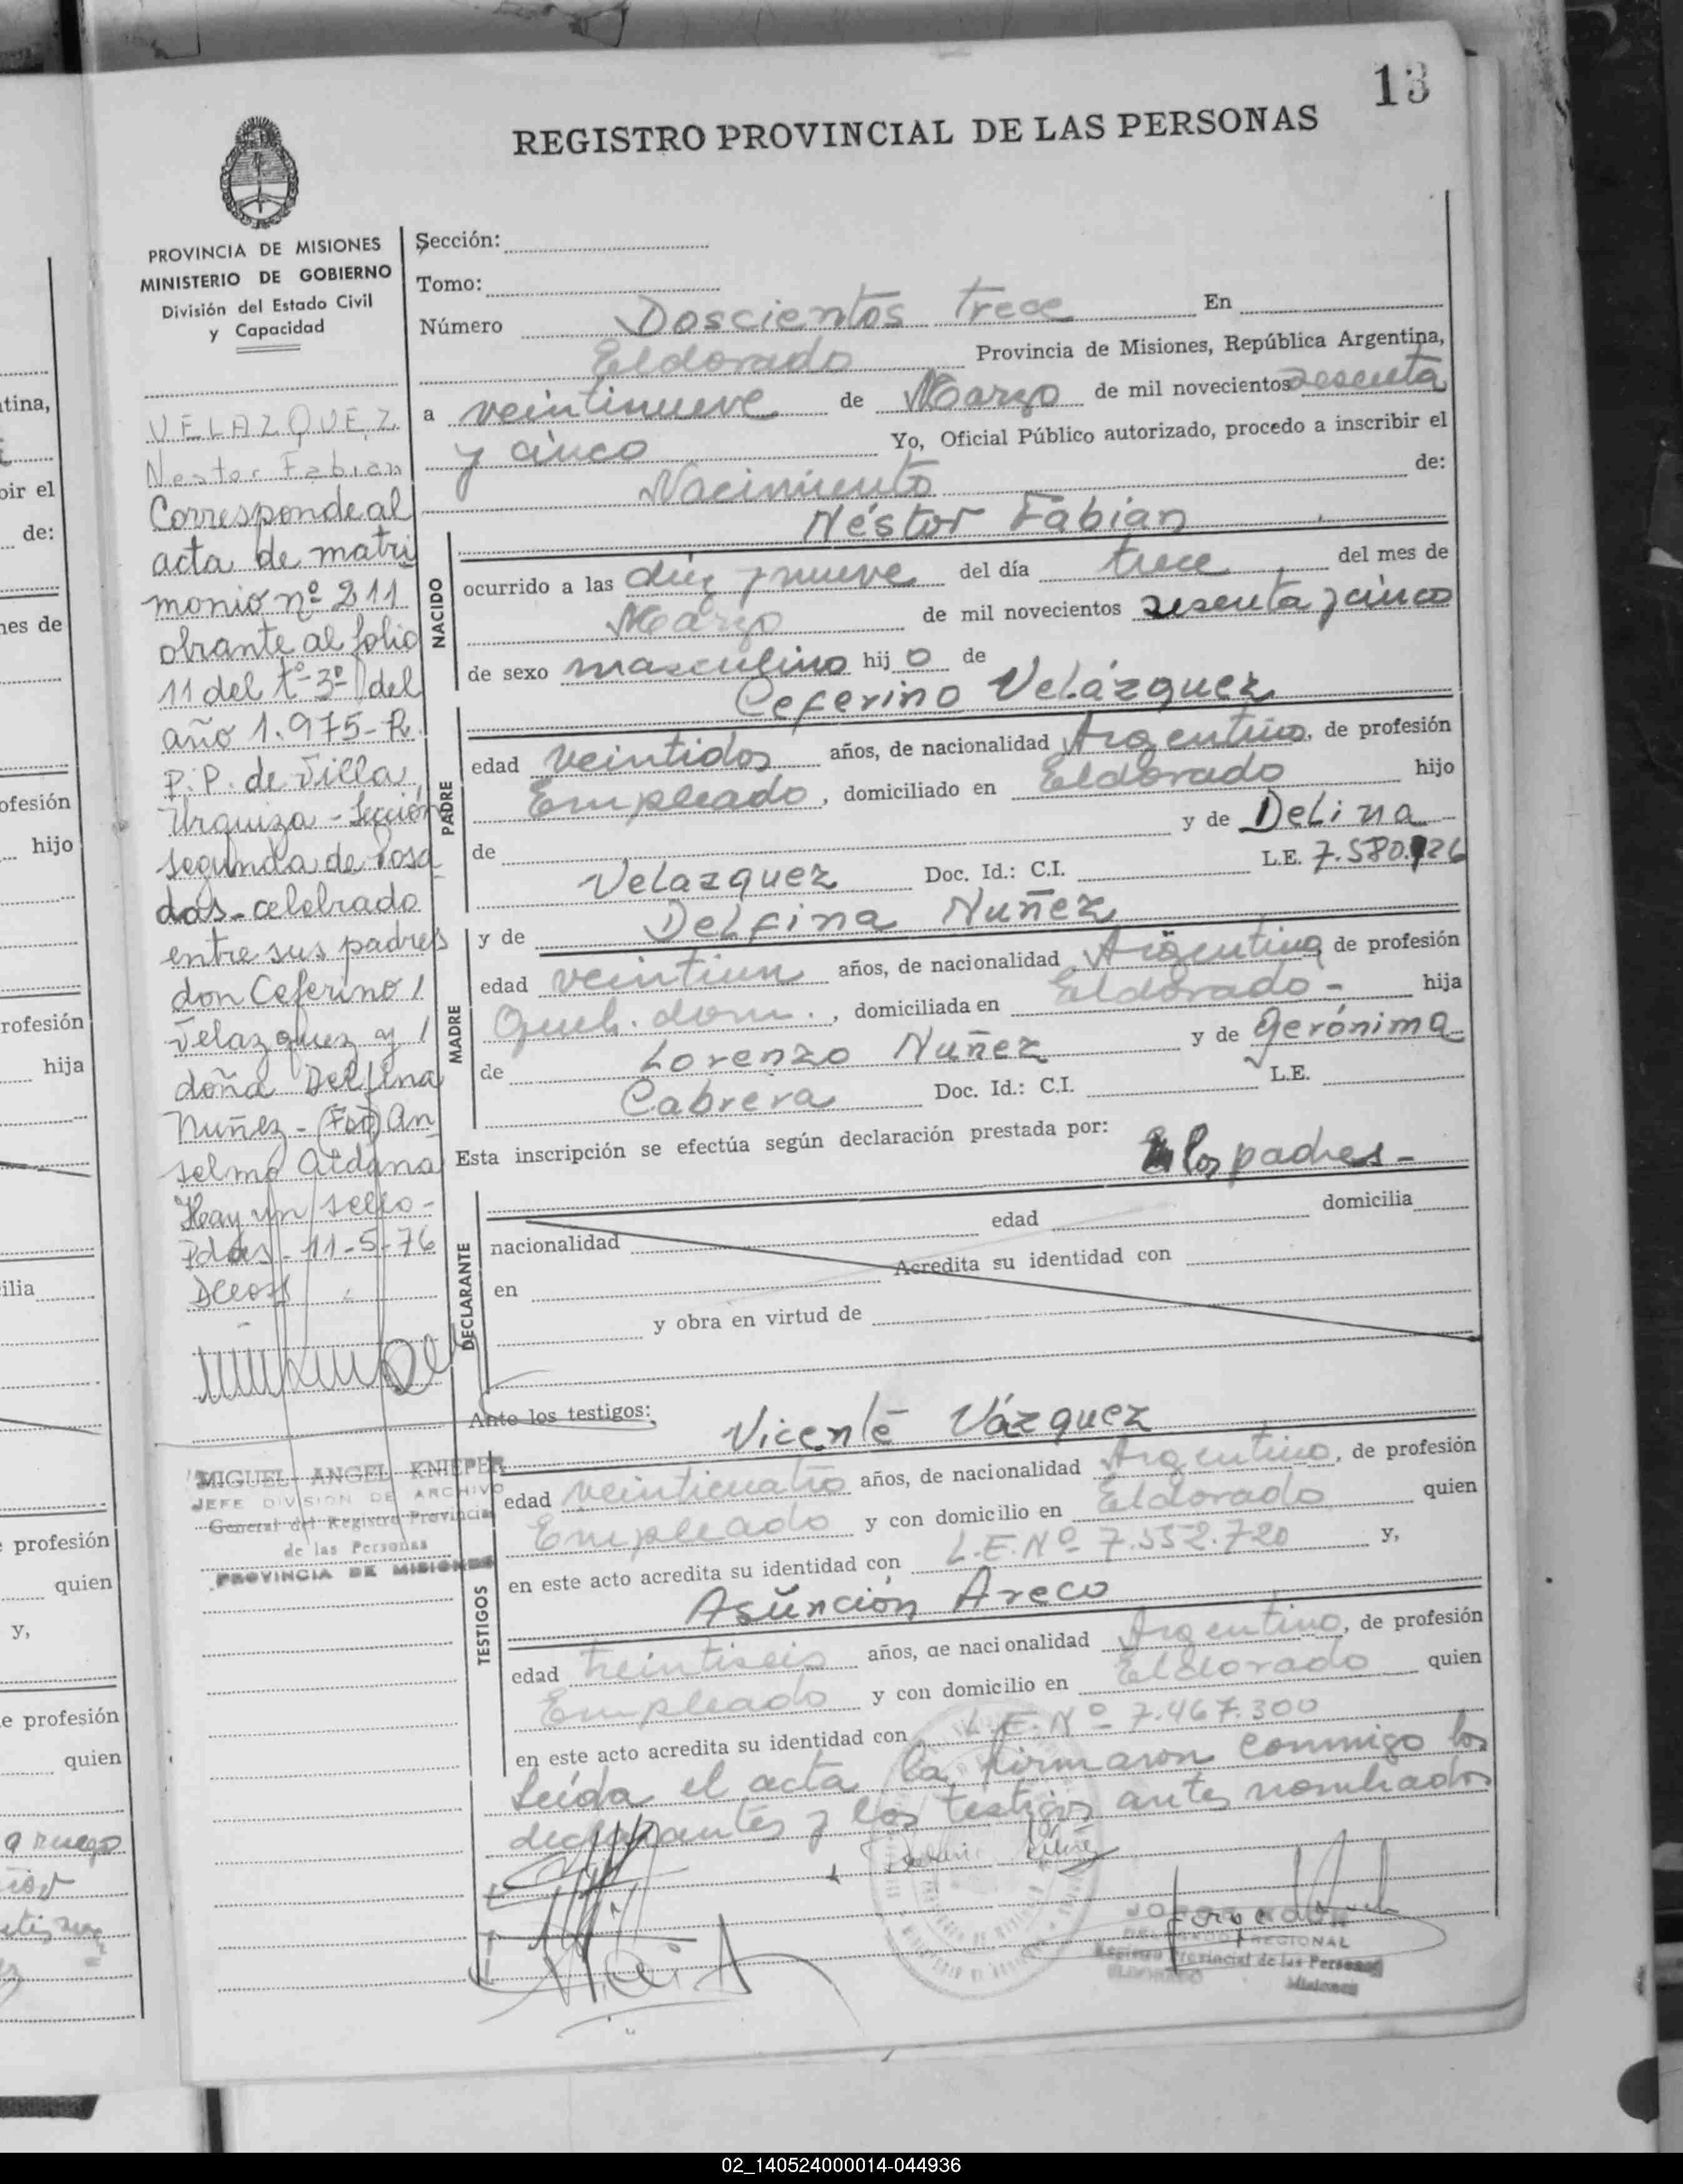 13
REGISTRO PROVINCIAL DE LAS PERSONAS
PROVINCIA DE MISIONES
MINISTERIO DE GOBIERNO
División del Estado Civil
y Capacidad
VELAZQUEZ
Nestor Fabian
Corresponde al
acta de matri
monio nº 211
obrante al folio
11 del tº 3º del
año 1.975-R.
P.P. de Villa
Urquiza - Sección
segunda de Posa
das - celebrado
entre sus padres
don Ceferino /
Velazquez y /
doña Delfina
Nuñez - (Fdo) An
selmo Aldana
Hay un sello -
Pdas - 11-5-76
MIGUEL ANGEL KNIEPER
JEFE DIVISION DE ARCHIVO
General del Registro Provincial
de las Personas
PROVINCIA DE MISIONES
Sección:
Tomo:
Número Doscientos trece En
Eldorado Provincia de Misiones, República Argentina,
a veintinueve de Marzo de mil novecientos sesenta
y cinco Yo, Oficial Público autorizado, procedo a inscribir el
Nacimiento de:
Néstor Fabián
NACIDO
ocurrido a las diez y nueve del día trece del mes de
Marzo de mil novecientos sesenta y cinco
de sexo masculino hij o de
Ceferino Velázquez
PADRE
edad veintidos años, de nacionalidad Argentino, de profesión
Empleado, domiciliado en Eldorado hijo
de y de Delina
Velazquez Doc. Id.: C.I. L.E. 7.580.926
y de Delfina Nuñez
MADRE
edad veintiun años, de nacionalidad Argentina de profesión
Queh. dom., domiciliada en Eldorado - hija
de Lorenzo Nuñez y de Gerónima
Cabrera Doc. Id.: C.I. L.E.
Esta inscripción se efectúa según declaración prestada por:
los padres -
DECLARANTE
edad domicilia
nacionalidad
en Acredita su identidad con
y obra en virtud de
Ante los testigos:
Vicente Vázquez
TESTIGOS
edad veinticuatro años, de nacionalidad Argentino, de profesión
Empleado y con domicilio en Eldorado quien
en este acto acredita su identidad con L.E. Nº 7.552.720 y,
Asunción Areco
edad treintiseis años, de nacionalidad Argentino, de profesión
Empleado y con domicilio en Eldorado quien
en este acto acredita su identidad con L.E. Nº 7.467.300
Leída el acta la firmaron conmigo los
declarantes y los testigos antes nombrados
JORGE
REGIONAL
Registro Provincial de las Personas
ELDORADO
Misiones
tina,
bir el
de:
mes de
ofesión
hijo
rofesión
hija
ilia
profesión
quien
y,
e profesión
quien
a ruego
02_140524000014-044936